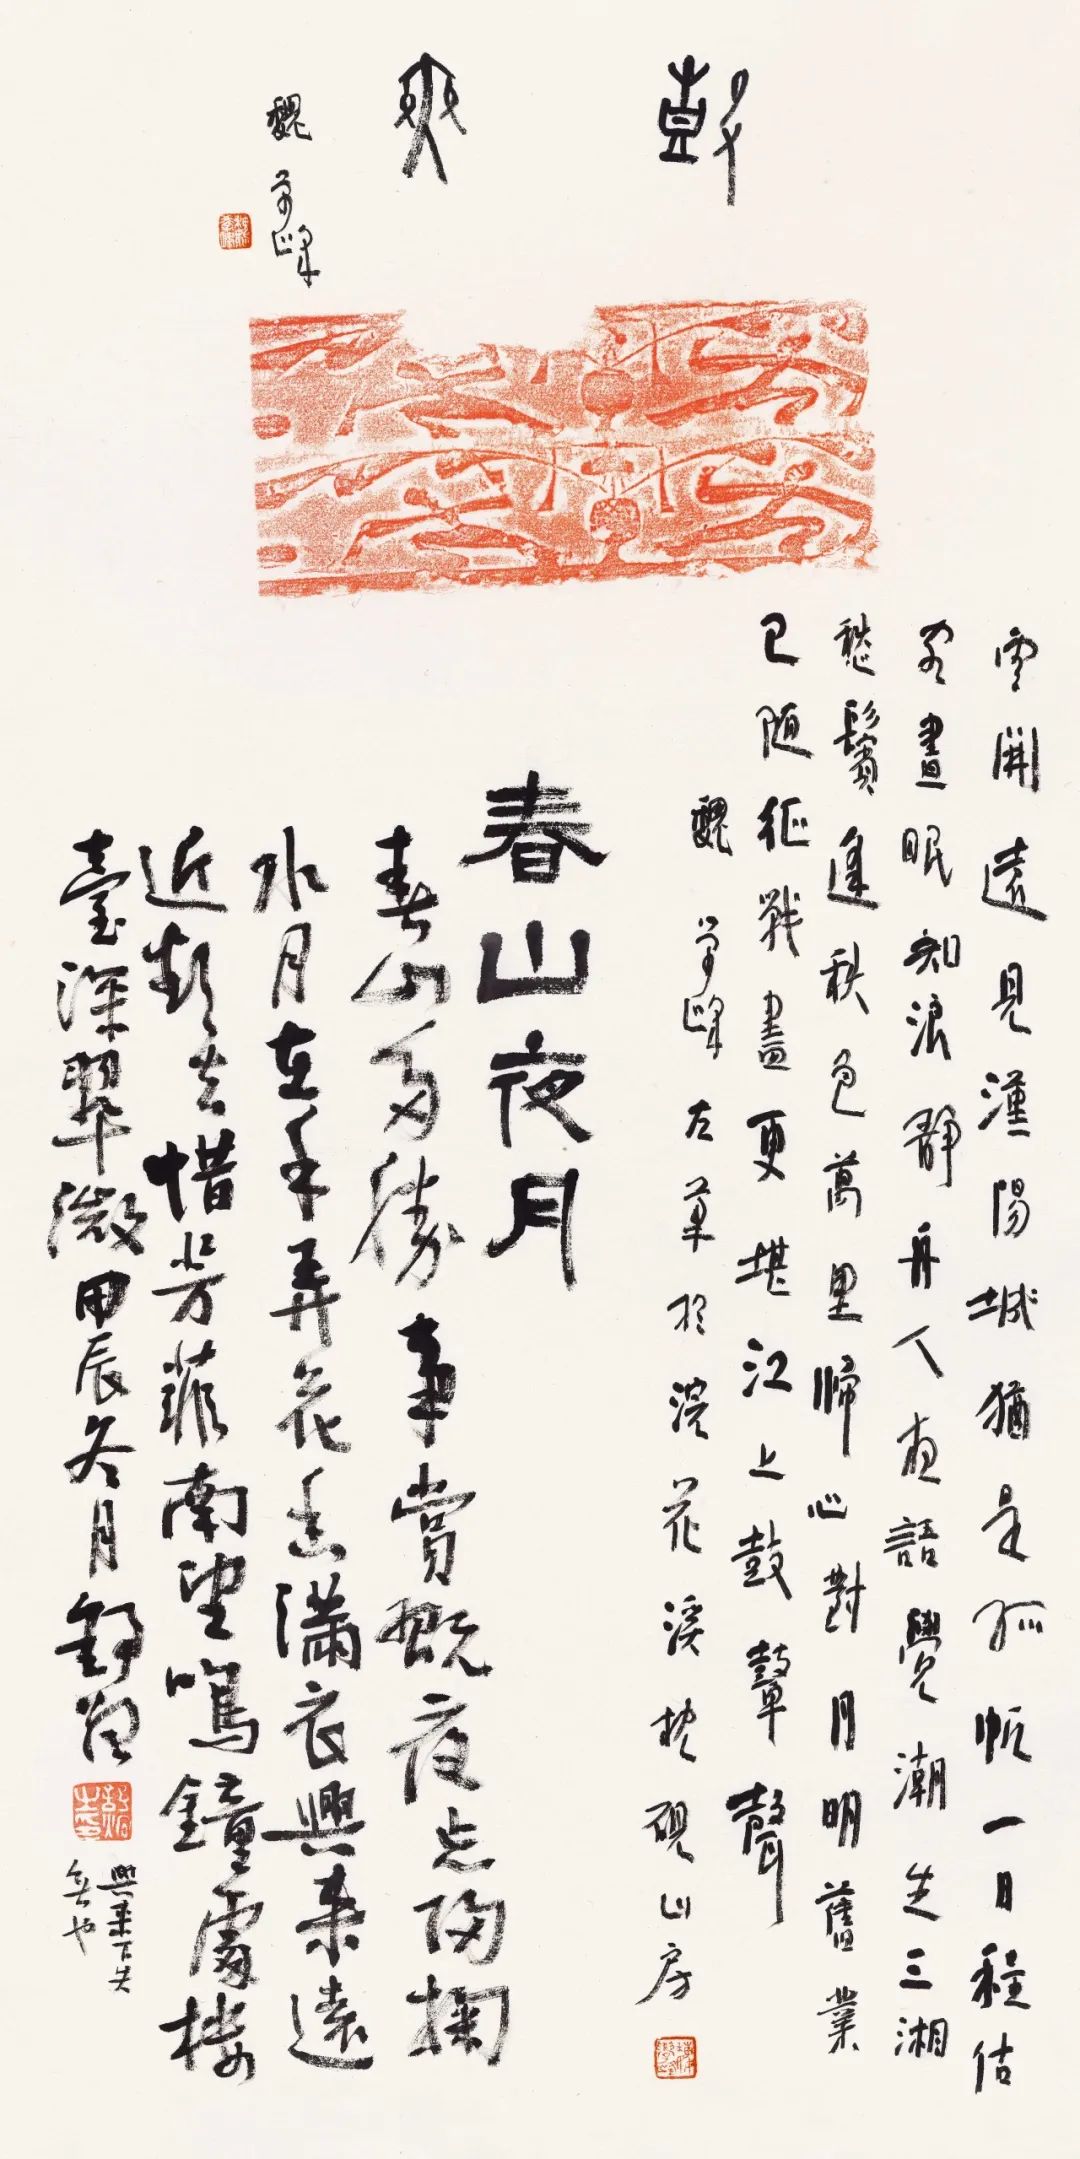 爽
魏學峰
雲開遠見漢陽城猶是孤帆一日程估
客晝眠知浪靜舟人夜語覺潮生三湘
愁鬢逢秋色萬里歸心對月明舊業
已隨征戰盡更堪江上鼓鼙聲
魏學峰左草於浣花溪枕硯山房
春山夜月
春山多勝事賞翫夜忘歸掬
水月在手弄花香滿衣興來遠
近欲去惜芳菲南望鳴鐘處樓
臺深翠微甲辰冬月舒炯
興來下失
無也